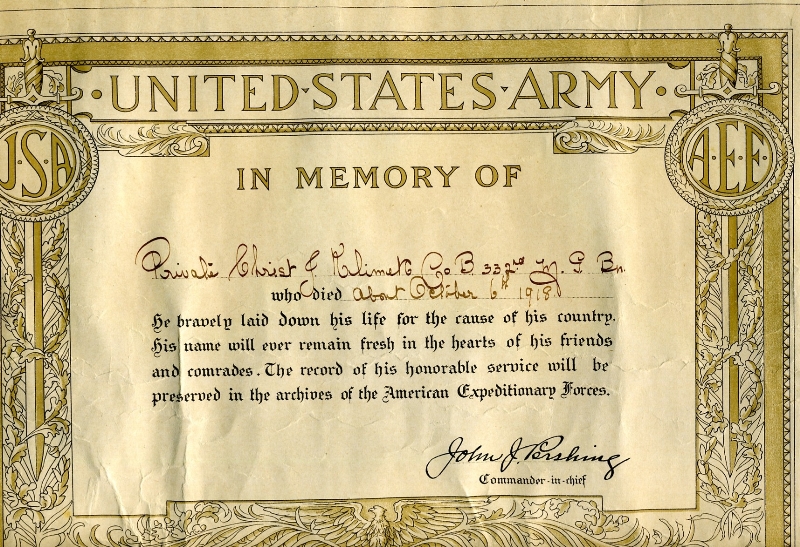 UNITED·STATES·ARMY
U·S·A
A·E·F
IN MEMORY OF
Private Christ J Klimek Co B 332nd M. G. Bn.
who died about October 6th 1918.
He bravely laid down his life for the cause of his country.
His name will ever remain fresh in the hearts of his friends
and comrades. The record of his honorable service will be
preserved in the archives of the American Expeditionary Forces.
John J. Pershing
Commander-in-chief